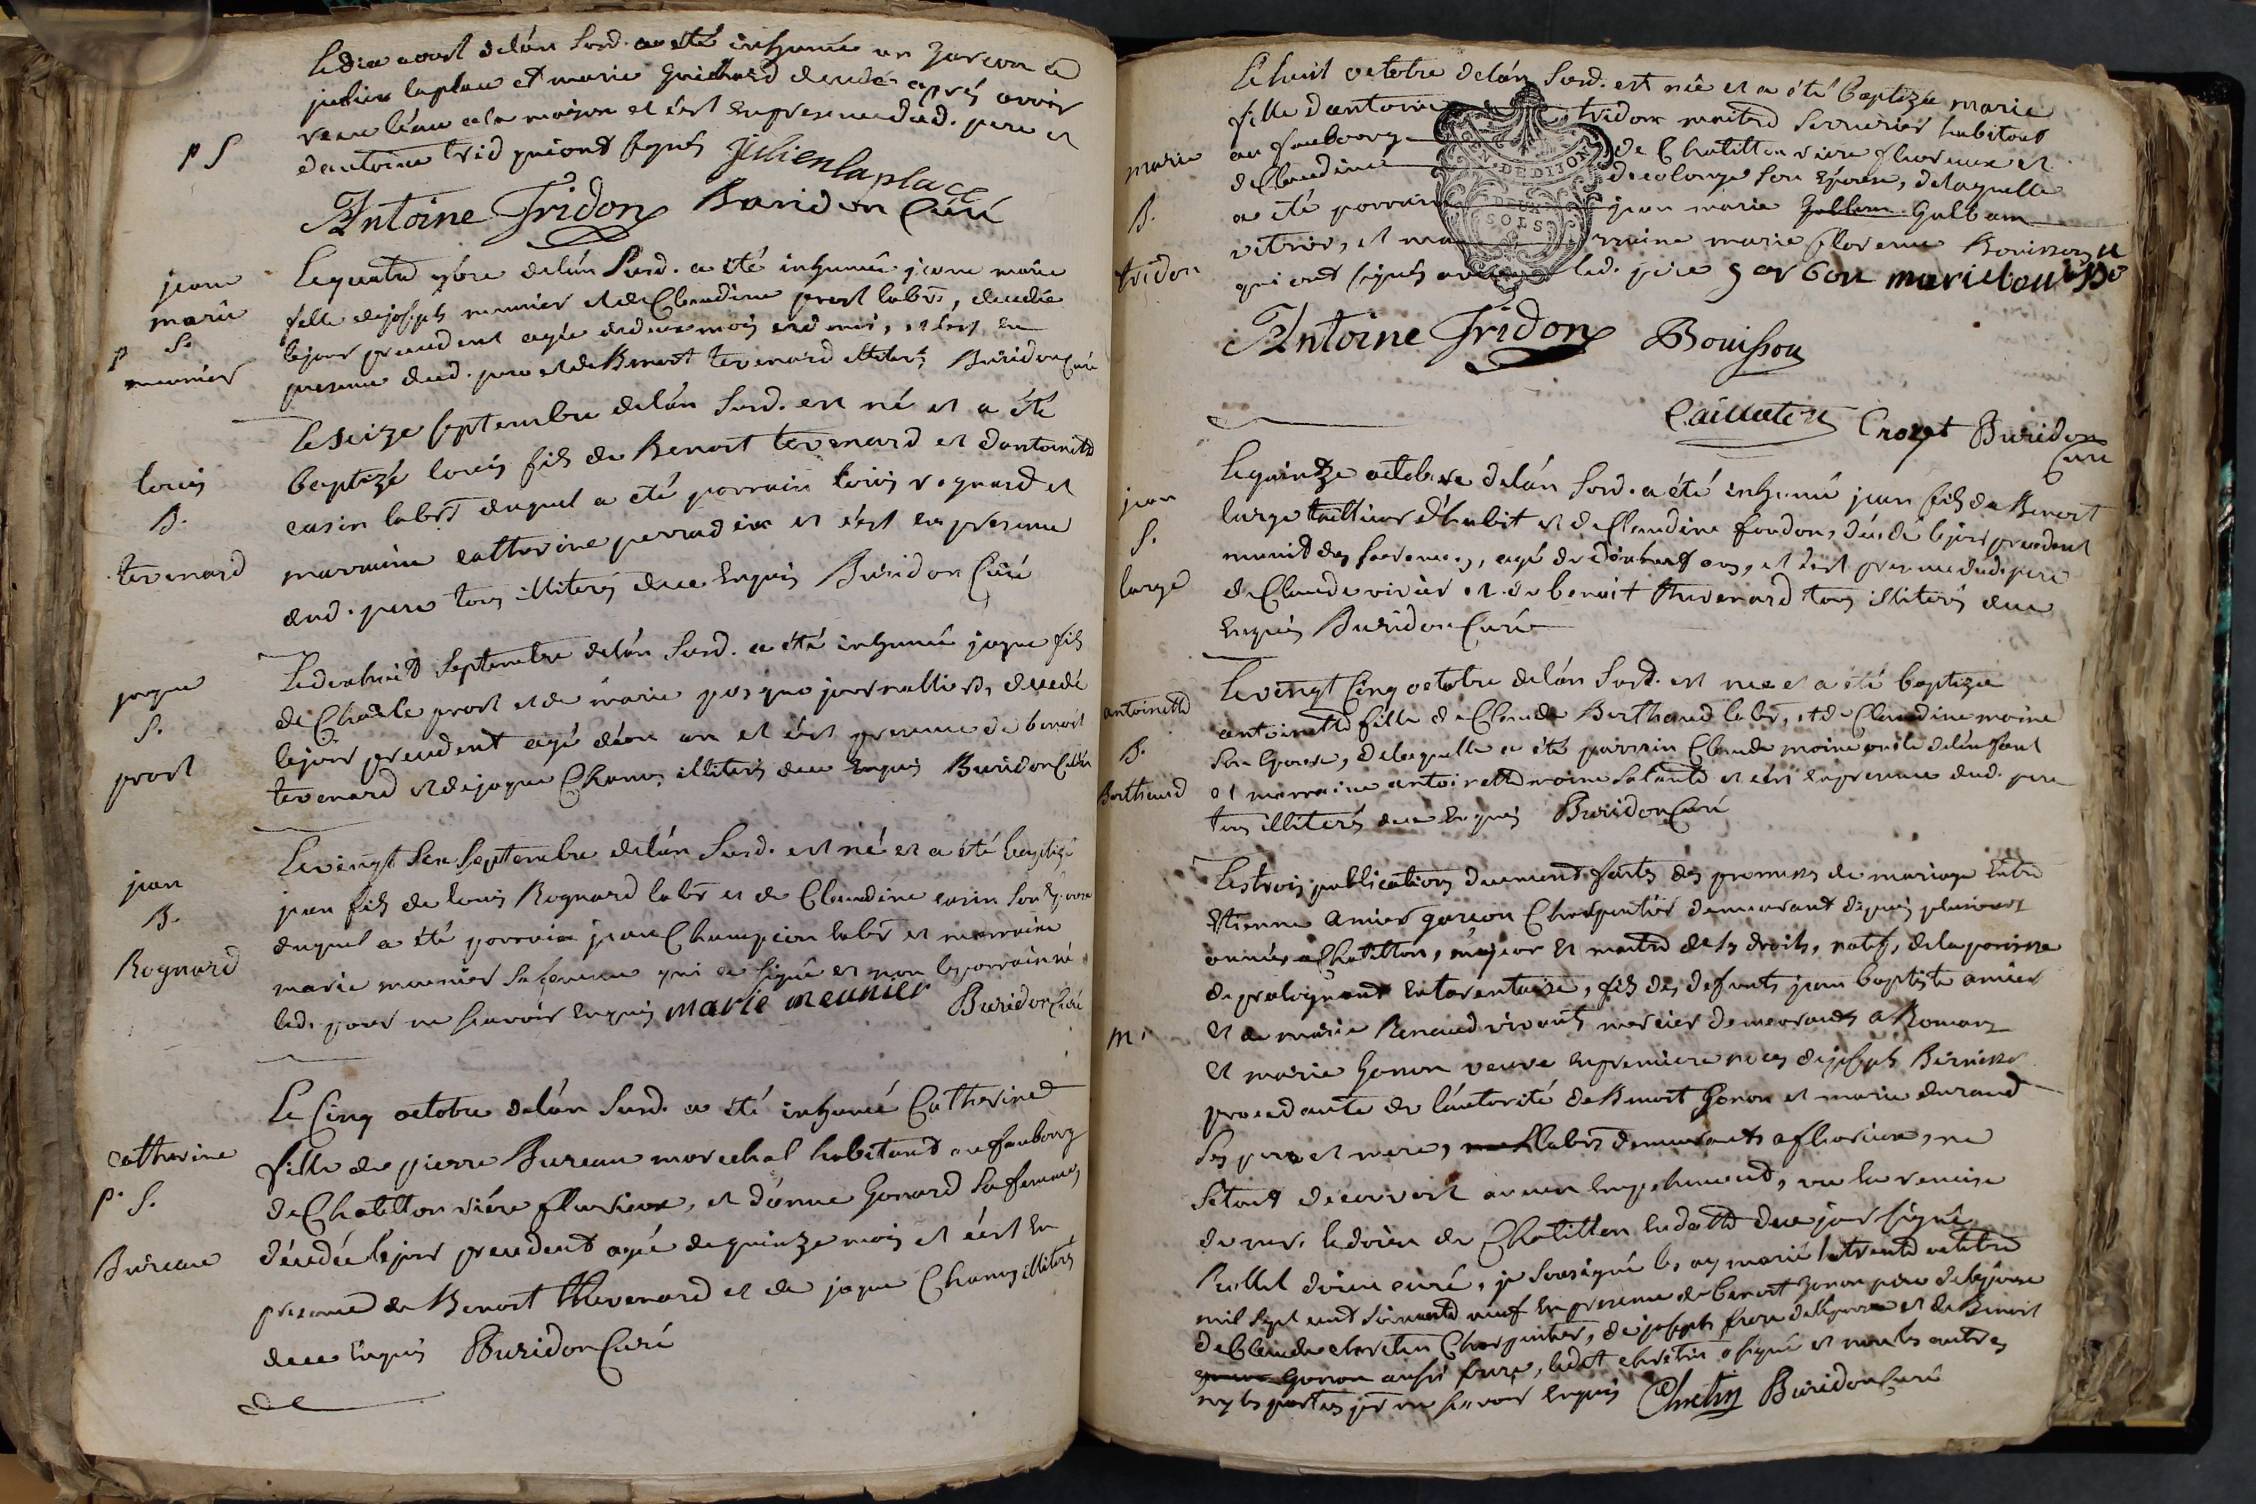 Le dix aoust de l'án susd. a été inhumé un garcon a
julien laplace et marie guichard decedé après avoir
recu l'eau a la maison et c'est en presence dud. pere et
d'antoine trid qui ont signés julien la place
p S
Antoine Tridon Buridon Curé
jeanne
marie
p S.
meunier
Le quatre 7bre de l'án susd. a été inhumée jeanne marie
fille de joseph meunier et de Claudine prost labrs, decedée
le jour precedent agée de deux mois et demi, et c'est en
presence dud. pere et de Benoit tevenard illiter. Buridon Curé
louis
B.
tevenard
Le seize septembre de l'án susd. est né et a été
baptizé louis fils de Benoit tevenard et d'antoinette
casin labrs duquel a été parrain louis rognard et
marraine catherine perradix et c'est en presence
dud. pere tous illiterés de ce enquis Buridon Curé
jaque
S.
prost
Le dixhuit septembre de l'án susd. a été inhumé jaque fils
de Charle prost et de marie journalliers, decedé
le jour precedent agé d'un an et c'est presence de benoit
tevenard et de jaque Chanus illiterés de ce enquis Buridon Curé
jean
B.
Rognard
Le vingt six septembre de l'án susd. est né et a été baptizé
jean fils de louis Rognard labr et de Claudine casin son épouse
duquel a été parrain jean Champion labr et marraine
marie meunier sa femme qui a signé et non le parrain ni
led. pour ne scavoir enquis marie meunier Buridon Curé
catherine
p. S.
Bureau
Le Cinq octobre de l'án susd. a été inhumée Catherine
fille de pierre Bureau marechal habitant au faubourg
de Chatillon riére fleurieux, et d'anne Gonard sa femme
décedée le jour precedent agée de quinze mois et c'est en
presence de Benoit thevenard et de jaque Chanus illiterés
de ce enquis Buridon Curé
marie
B.
tridon
Le huit octobre de l'án susd. est née et a été baptizée marie
fille d'antoine tridon maitre serrurier habitant
au faubourg de Chatillon riere fleurieux et
de Claudine decolonge son épouse, de laquelle
a été parrain jean marie Galban
vitrier, et marraine marie florence Bouisson
qui ont signés avec led. pere garbon marie bouisso
EN. DE DIJON
DEUX
SOLS
Antoine Tridon Bouisson
Caillaten Crozet Buridon
Curé
jean
S.
large
Le quinze octobre de l'án susd. a été inhumé jean fils de Benoit
large tallieur d'habit et de Claudine foudon, décedé le jour precedent
munit des sacremens, agé de dixhuit ans, et c'est presence dud. pere
de Claude vivier et de benoit thevenard tous illiterés de ce
enquis Buridon Curé
antoinette
B.
Berthaud
Le vingt Cinq octobre de l'án susd. est née et a été baptizée
antoinette fille de Claude Berthaud labr, et de Claudine moine
son epouse, de laquelle a été parrain Claude moine oncle de l'enfant
et marraine antoinette moine sa tante et c'est en presence dud. pere
tous illiterés de ce enquis Buridon Curé
m.
Les trois publications duement faites des promesses de mariage entre
Etienne amier garçon Charpentier demeurant depuis plusieurs
années a Chatillon, majeur et maitre de ses droits, natif, de la paroisse
de pralognant en tarentaise, fils des defunts jean baptiste amier
et de marie Renaud vivants mercier demeurants a Romans
et marie Gonon veuve en premiere noces de joseph Bernisse
procedante de l'autorité de Benoit Gonon et marie durand
ses pere et mere, labrs demeurants a fleurieux, ne
s'etant decouvert aucun empechement, vu la remise
de mr. le doien de Chatillon en datte de ce jour signé
Rollet doien curé, je soussigné les ay marié le trente octobre
mil sept cent soixante neuf en presence de benoit gonon pere de l'épouse
de Claude chretin Charpentier, de joseph frere de l'épouse et de Benoit
Gonon aussi frere, ledit chretin a signé et non les autres
ny les parties pour ne scavoir enquis Chretin Buridon Curé